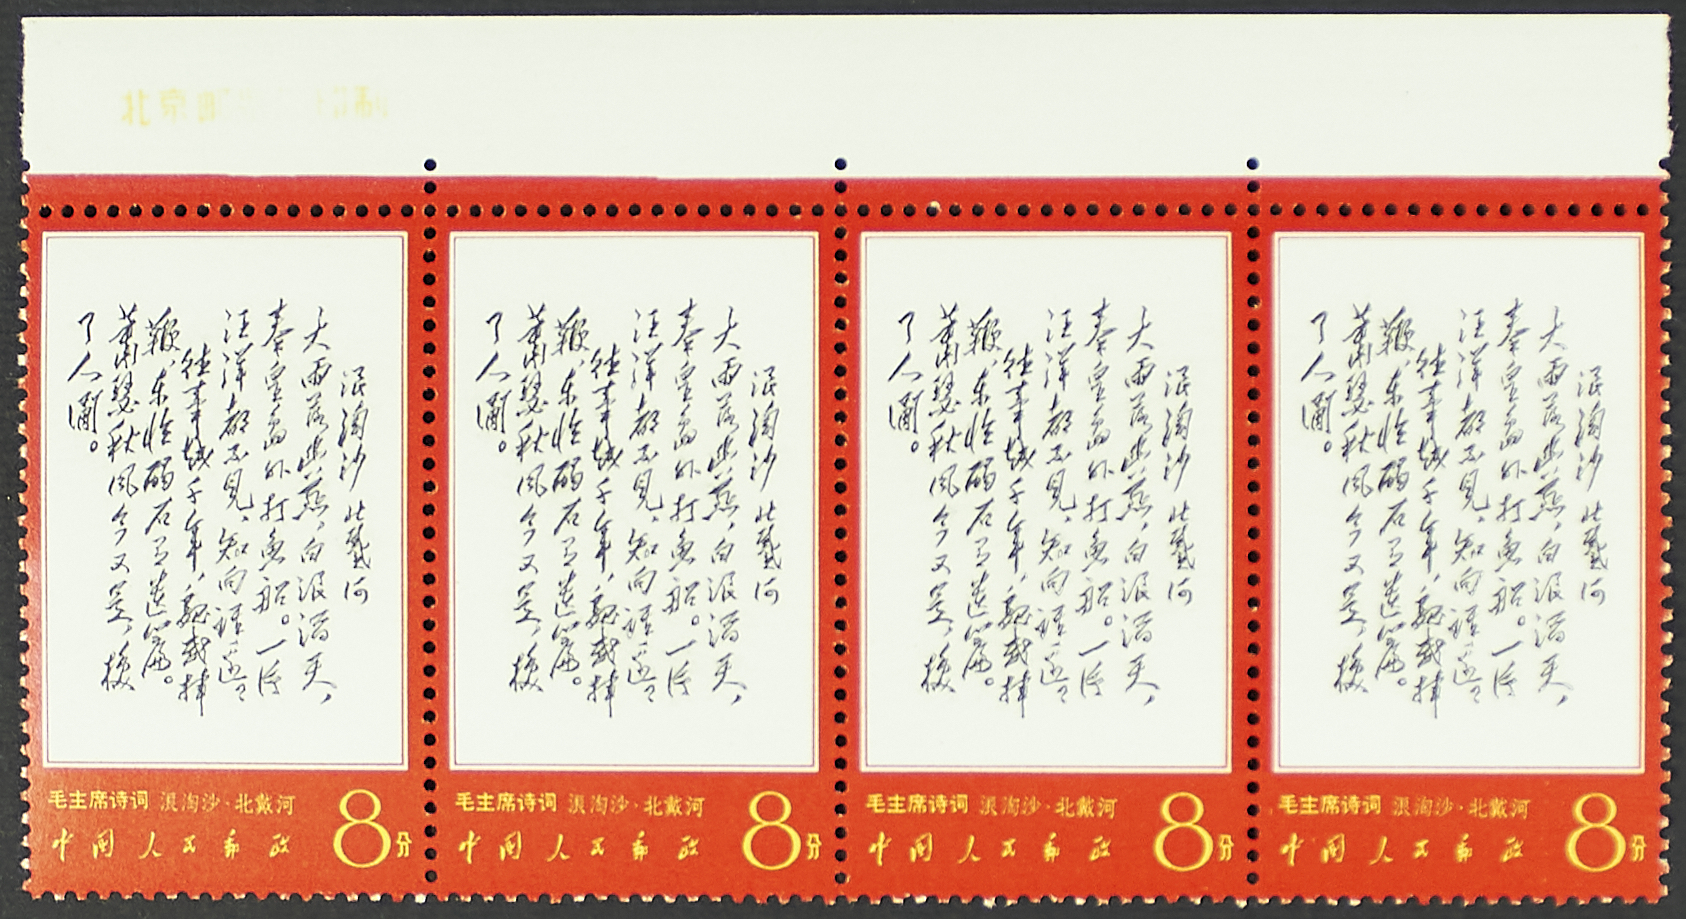 北京
浪淘沙 北戴河
大雨落幽燕,白浪滔天,
秦皇島外打魚船。一片
汪洋都不見,知向誰邊
往事越千年,魏武揮
鞭,東臨碣石有遺篇。
蕭瑟秋風今又是,換
了人間。
毛主席诗词 浪淘沙·北戴河
中国人民邮政
8分
浪淘沙 北戴河
大雨落幽燕,白浪滔天,
秦皇島外打魚船。一片
汪洋都不見,知向誰邊
往事越千年,魏武揮
鞭,東臨碣石有遺篇。
蕭瑟秋風今又是,換
了人間。
毛主席诗词 浪淘沙·北戴河
中国人民邮政
8分
浪淘沙 北戴河
大雨落幽燕,白浪滔天,
秦皇島外打魚船。一片
汪洋都不見,知向誰邊
往事越千年,魏武揮
鞭,東臨碣石有遺篇。
蕭瑟秋風今又是,換
了人間。
毛主席诗词 浪淘沙·北戴河
中国人民邮政
8分
浪淘沙 北戴河
大雨落幽燕,白浪滔天,
秦皇島外打魚船。一片
汪洋都不見,知向誰邊
往事越千年,魏武揮
鞭,東臨碣石有遺篇。
蕭瑟秋風今又是,換
了人間。
毛主席诗词 浪淘沙·北戴河
中国人民邮政
8分